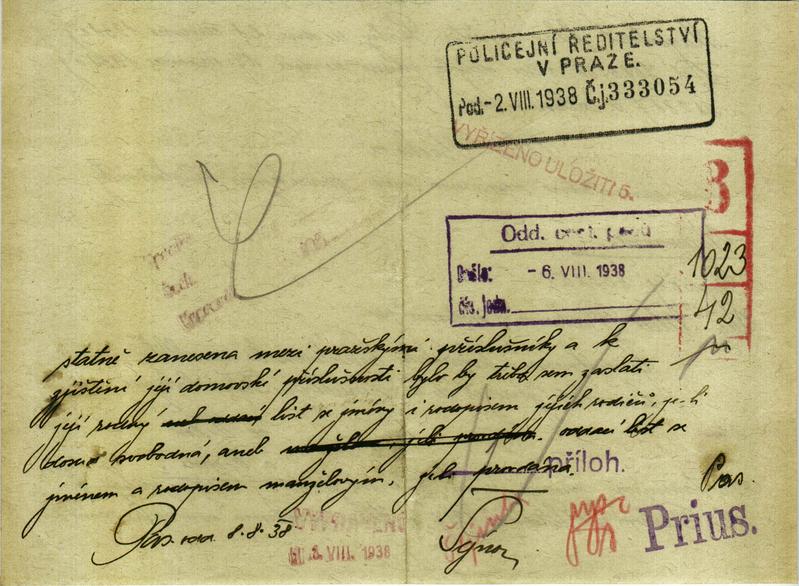 POLICEJNÍ ŘEDITELSTVÍ
V PRAZE.
Pod.-2.VIII.1938 Č.j.333054
VYŘÍZENO ULOŽITI
B
Odd. cest. pasů
Došlo: - 6. VIII. 1938
čís. jedn.
1023
42
statně zanesena mezi pražskými příslušníky a ke
zjištění její domovské příslušnosti bylo by třeba sem zaslati
její rodný list se jmény i rodopisem jejích rodičů, je-li
dosud svobodná, aneb oddací list se
jménem a rodopisem manželovým, je-li provdána.
příloh.
Pas.
Pas. odd. 8.8.38
VYPRAVENO
VIII. 1938
Prius.